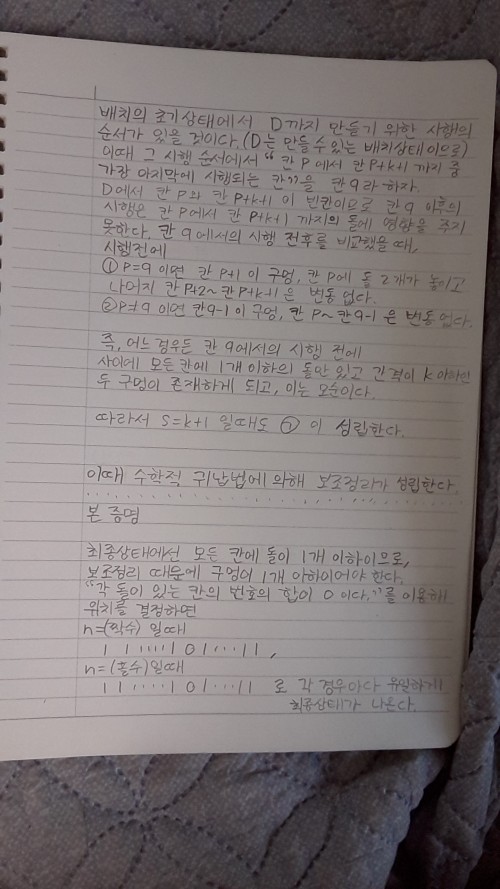 배치의 초기상태에서 D까지 만들기 위한 시행의
순서가 있을 것이다. (D는 만들 수 있는 배치상태이므로)
이때 그 시행 순서에서 "칸 P에서 칸 P+k+1 까지 중
가장 마지막에 시행되는 칸"을 칸 q라 하자.
D에서 칸 P와 칸 P+k+1 이 빈칸이므로 칸 q 이후의
시행은 칸 P에서 칸 P+k+1 까지의 돌에 영향을 주지
못한다. 칸 q에서의 시행 전후를 비교했을 때,
시행전에
① P=q 이면 칸 P+1 이 구멍, 칸 P에 돌 2개가 놓이고
나머지 칸 P+2~칸 P+k+1은 변동 없다.
② P≠q 이면 칸 q-1 이 구멍, 칸 P~칸 q-1 은 변동 없다.
즉, 어느 경우든 칸 q에서의 시행 전에
사이에 모든 칸에 1개 이하의 돌만 있고 간격이 k 이하인
두 구멍이 존재하게 되고, 이는 모순이다.
따라서 S=k+1 일때도 ㉠ 이 성립한다.
이때 수학적 귀납법에 의해 보조정리가 성립한다.
본 증명
최종상태에선 모든 칸에 돌이 1개 이하이므로,
보조정리 때문에 구멍이 1개 이하이어야 한다.
"각 돌이 있는 칸의 번호의 합이 0 이다."를 이용해
위치를 결정하면
n=(짝수) 일때
1 1 ····· 1 0 1 ···· 1 1 ,
n=(홀수)일때
1 1 ····· 1 0 1 ···· 1 1 로 각 경우마다 유일하게
최종상태가 나온다.